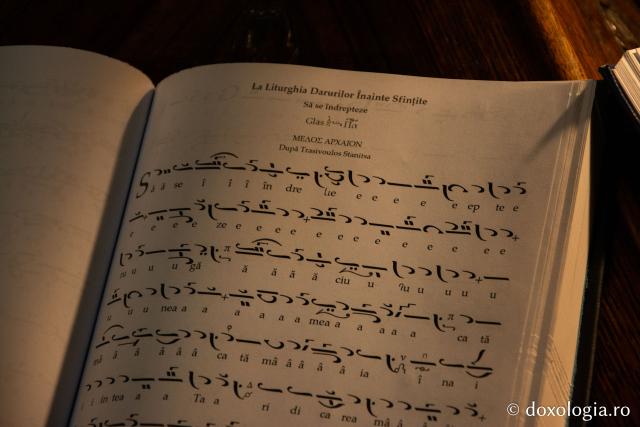 La Liturghia Darurilor Înainte Sfințite
Să se îndrepteze
Glas Πα
ΜΕΛΟΣ ΑΡΧΑΙΟΝ
După Trasivoulos Stanitsa
S ă ă se î î î î în dre e e e e e ep te e
e e e e ze e e e e e e e e e e e e e
u u u u gă ă ă ă ă ă ciu u u u u u u
u u u nea a a a a a a mea a a a a a ca tă
mâ â â â â â ca tă mâ â â â â ia î na
i în tea a a Ta a ri di ca rea mâ
© doxologia.ro